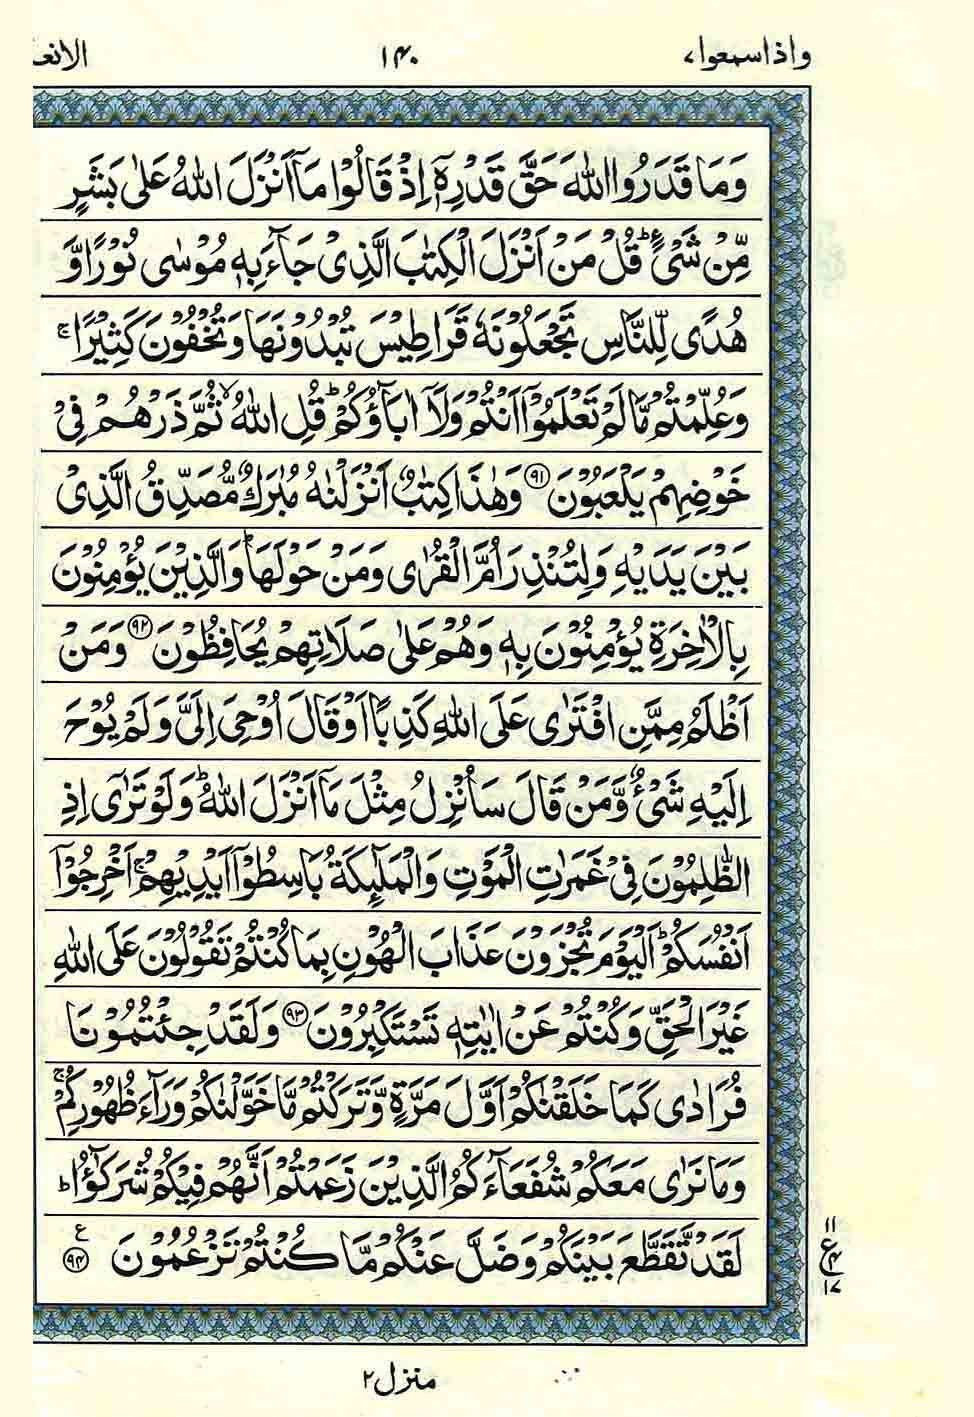 واذاسمعوا٧ ١٤٠ الانع
وَمَا قَدَرُوا اللّٰهَ حَقَّ قَدْرِهٖۤ اِذْ قَالُوْا مَاۤ اَنْزَلَ اللّٰهُ عَلٰى بَشَرٍ
مِّنْ شَىْءٍؕ قُلْ مَنْ اَنْزَلَ الْكِتٰبَ الَّذِىْ جَآءَ بِهٖ مُوْسٰى نُوْرًا وَّ
هُدًى لِّلنَّاسِ تَجْعَلُوْنَهٗ قَرَاطِيْسَ تُبْدُوْنَهَا وَتُخْفُوْنَ كَثِيْرًاۚ
وَعُلِّمْتُمْ مَّا لَمْ تَعْلَمُوْۤا اَنْتُمْ وَلَاۤ اٰبَآؤُكُمْؕ قُلِ اللّٰهُۙ ثُمَّ ذَرْهُمْ فِىْ
خَوْضِهِمْ يَلْعَبُوْنَ ٩١ وَهٰذَا كِتٰبٌ اَنْزَلْنٰهُ مُبٰرَكٌ مُّصَدِّقُ الَّذِىْ
بَيْنَ يَدَيْهِ وَلِتُنْذِرَ اُمَّ الْقُرٰى وَمَنْ حَوْلَهَاؕ وَالَّذِيْنَ يُؤْمِنُوْنَ
بِالْاٰخِرَةِ يُؤْمِنُوْنَ بِهٖ وَهُمْ عَلٰى صَلَاتِهِمْ يُحَافِظُوْنَ ٩٢ وَمَنْ
اَظْلَمُ مِمَّنِ افْتَرٰى عَلَى اللّٰهِ كَذِبًا اَوْ قَالَ اُوْحِىَ اِلَىَّ وَلَمْ يُوْحَ
اِلَيْهِ شَىْءٌ وَّمَنْ قَالَ سَاُنْزِلُ مِثْلَ مَاۤ اَنْزَلَ اللّٰهُؕ وَلَوْ تَرٰٓى اِذِ
الظّٰلِمُوْنَ فِىْ غَمَرٰتِ الْمَوْتِ وَالْمَلٰٓئِكَةُ بَاسِطُوْۤا اَيْدِيْهِمْۚ اَخْرِجُوْۤا
اَنْفُسَكُمْؕ اَلْيَوْمَ تُجْزَوْنَ عَذَابَ الْهُوْنِ بِمَا كُنْتُمْ تَقُوْلُوْنَ عَلَى اللّٰهِ
غَيْرَ الْحَقِّ وَكُنْتُمْ عَنْ اٰيٰتِهٖ تَسْتَكْبِرُوْنَ ٩٣ وَلَقَدْ جِئْتُمُوْنَا
فُرَادٰى كَمَا خَلَقْنٰكُمْ اَوَّلَ مَرَّةٍ وَّتَرَكْتُمْ مَّا خَوَّلْنٰكُمْ وَرَآءَ ظُهُوْرِكُمْۚ
وَمَا نَرٰى مَعَكُمْ شُفَعَآءَكُمُ الَّذِيْنَ زَعَمْتُمْ اَنَّهُمْ فِيْكُمْ شُرَكٰٓؤُاؕ
لَقَدْ تَّقَطَّعَ بَيْنَكُمْ وَضَلَّ عَنْكُمْ مَّا كُنْتُمْ تَزْعُمُوْنَ ٩٤ ع
١١
ع ٤
١٧
منزل ٢